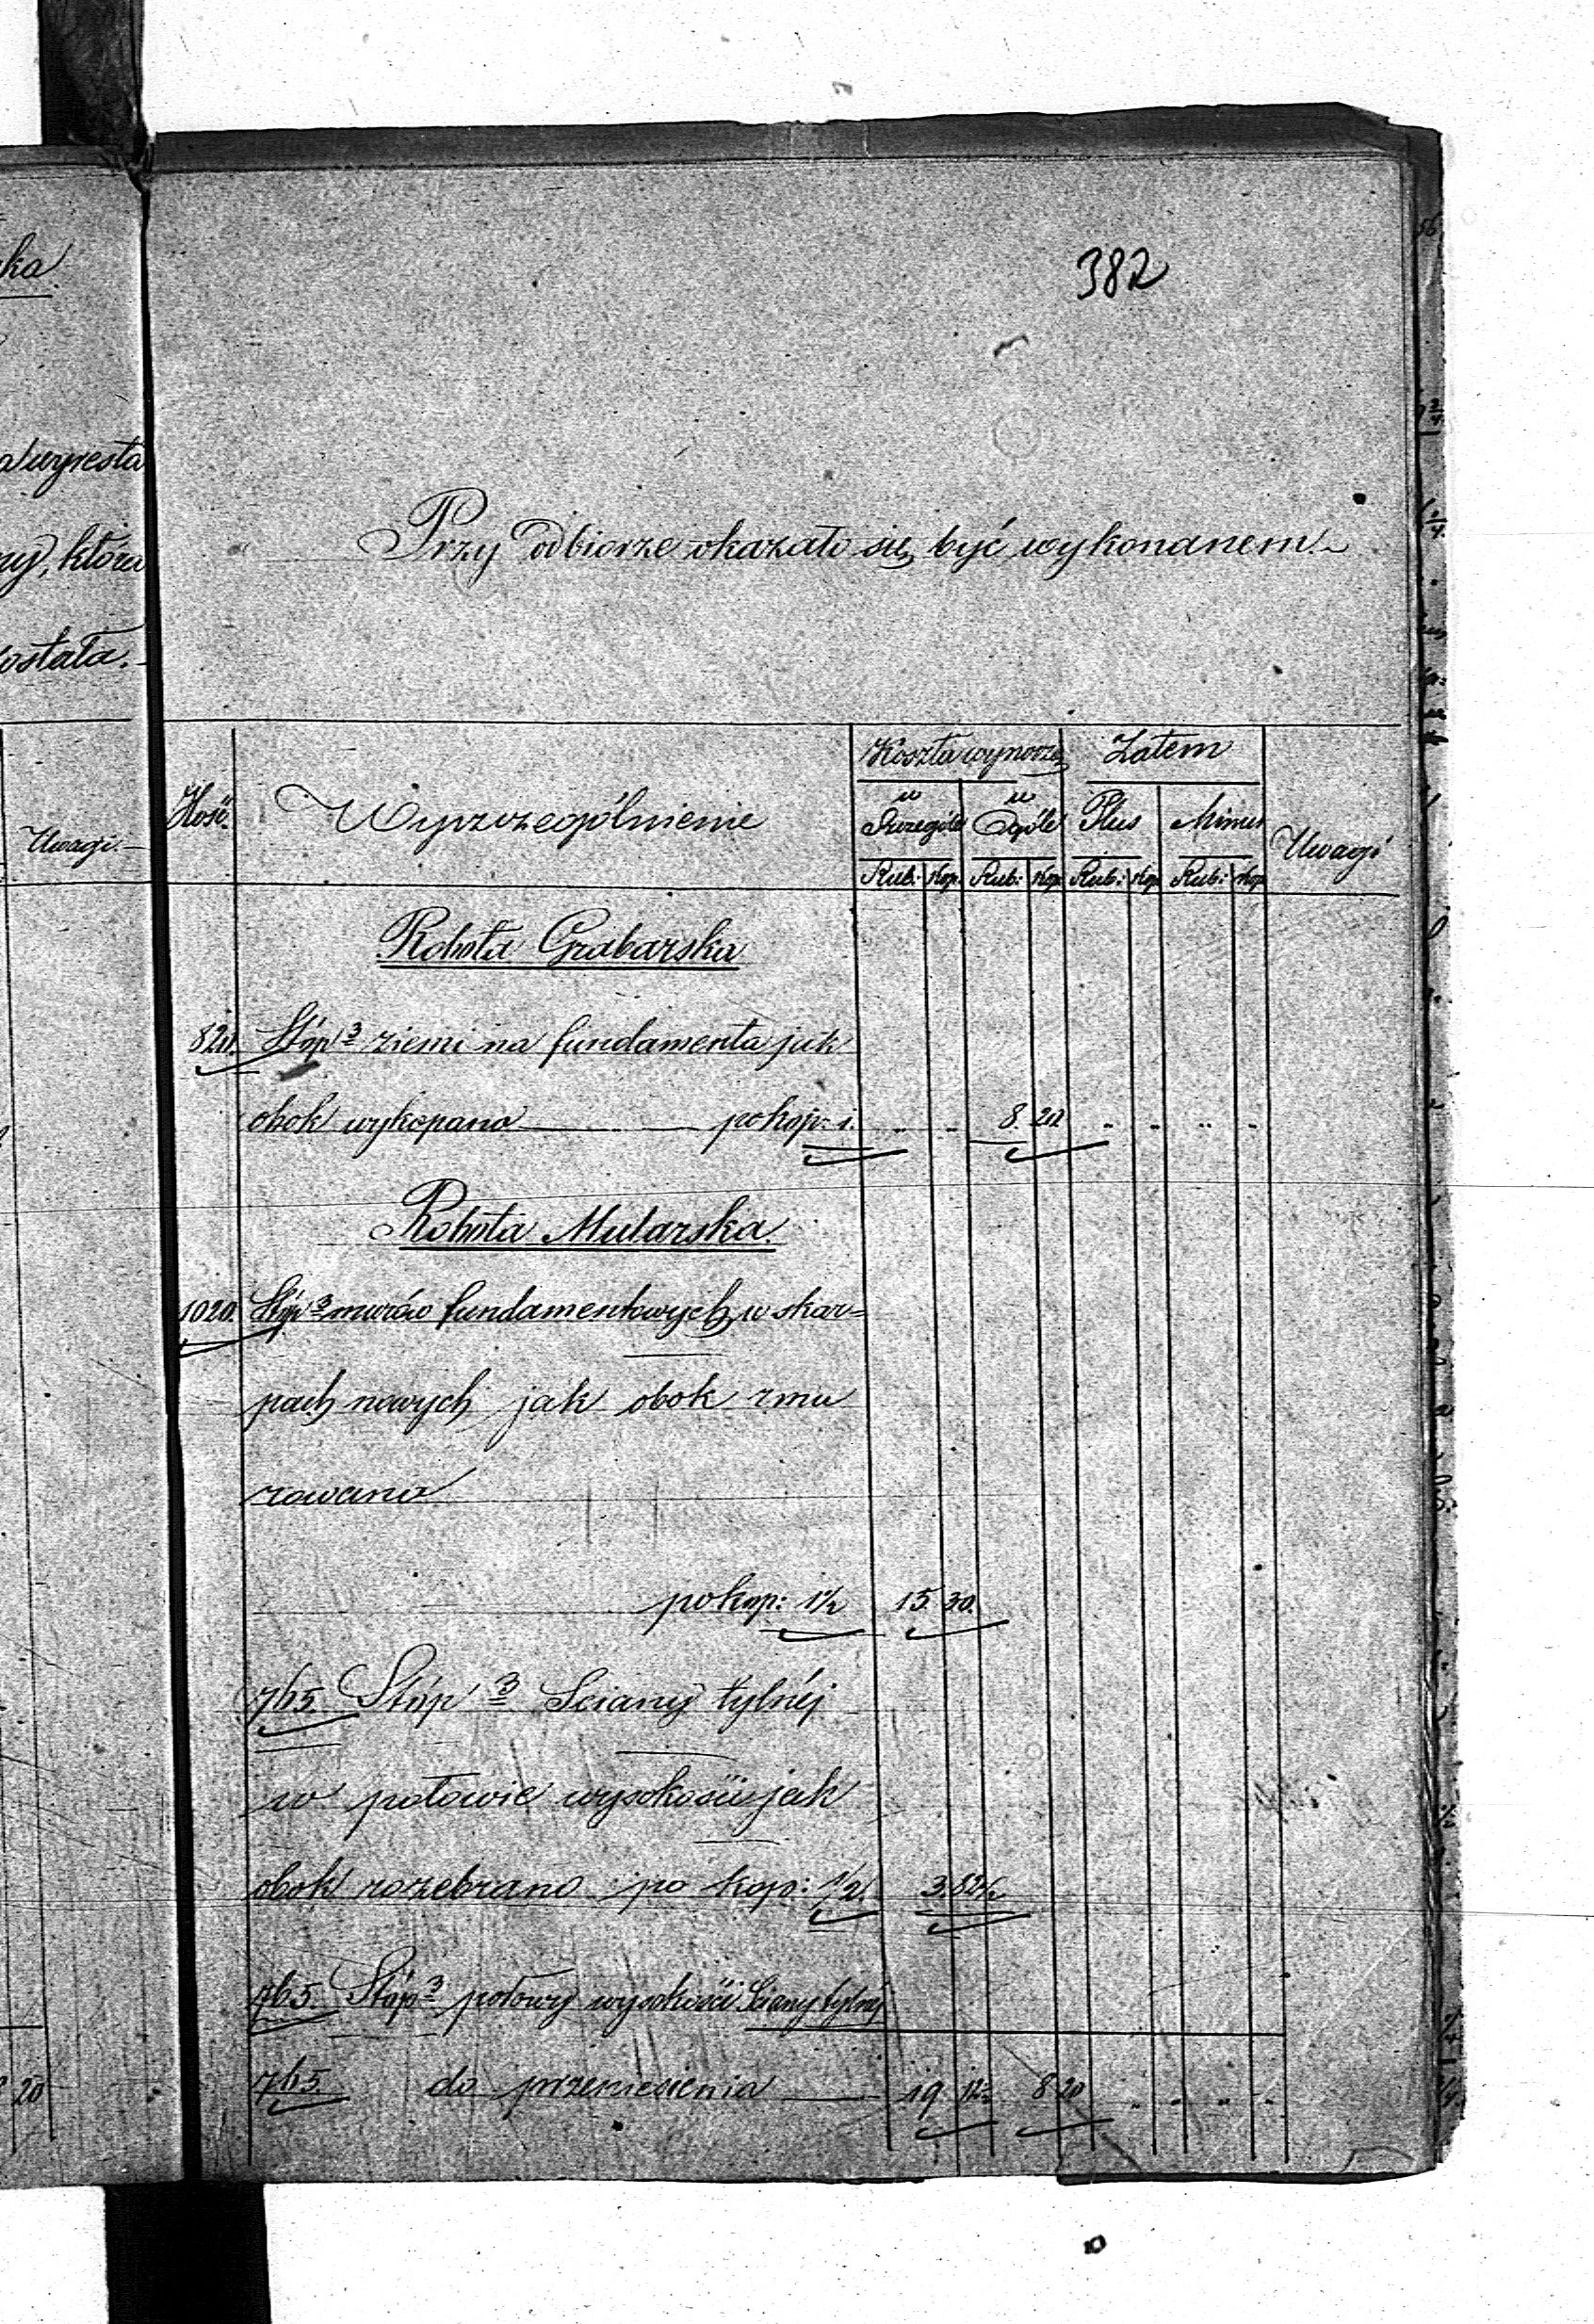 382
ka
wyresta
ny, która
ostała.
Przy odbiorze okazało się być wykonanem.
Uwagi.
Ilość.
Wyszczególnienie
Koszta wynoszą
Zatem
w Szczególe
w Ogóle
Plus
Minus
Uwagi
Rub: Kop. Rub: Kop. Rub: Kop. Rub: Kop.
Robota Grabarska
820. Stóp 3 ziemi na fundamenta jak
obok wykopano po kop: 1. 8. 20.
Robota Mularska.
1020. Stóp 3 murów fundamentowych w skar=
pach nowych jak obok zmu
rowano
po kop: 1 1/2 15. 30.
765. Stóp 3 Sciany tylnéj
w połowie wysokości jak
obok rozebrano po kop: 1/2. 3. 82 1/2
765. Stóp 3 połowy wysokości Sciany tylnéj
765. do przeniesienia 19. 12 1/2 8 20
20